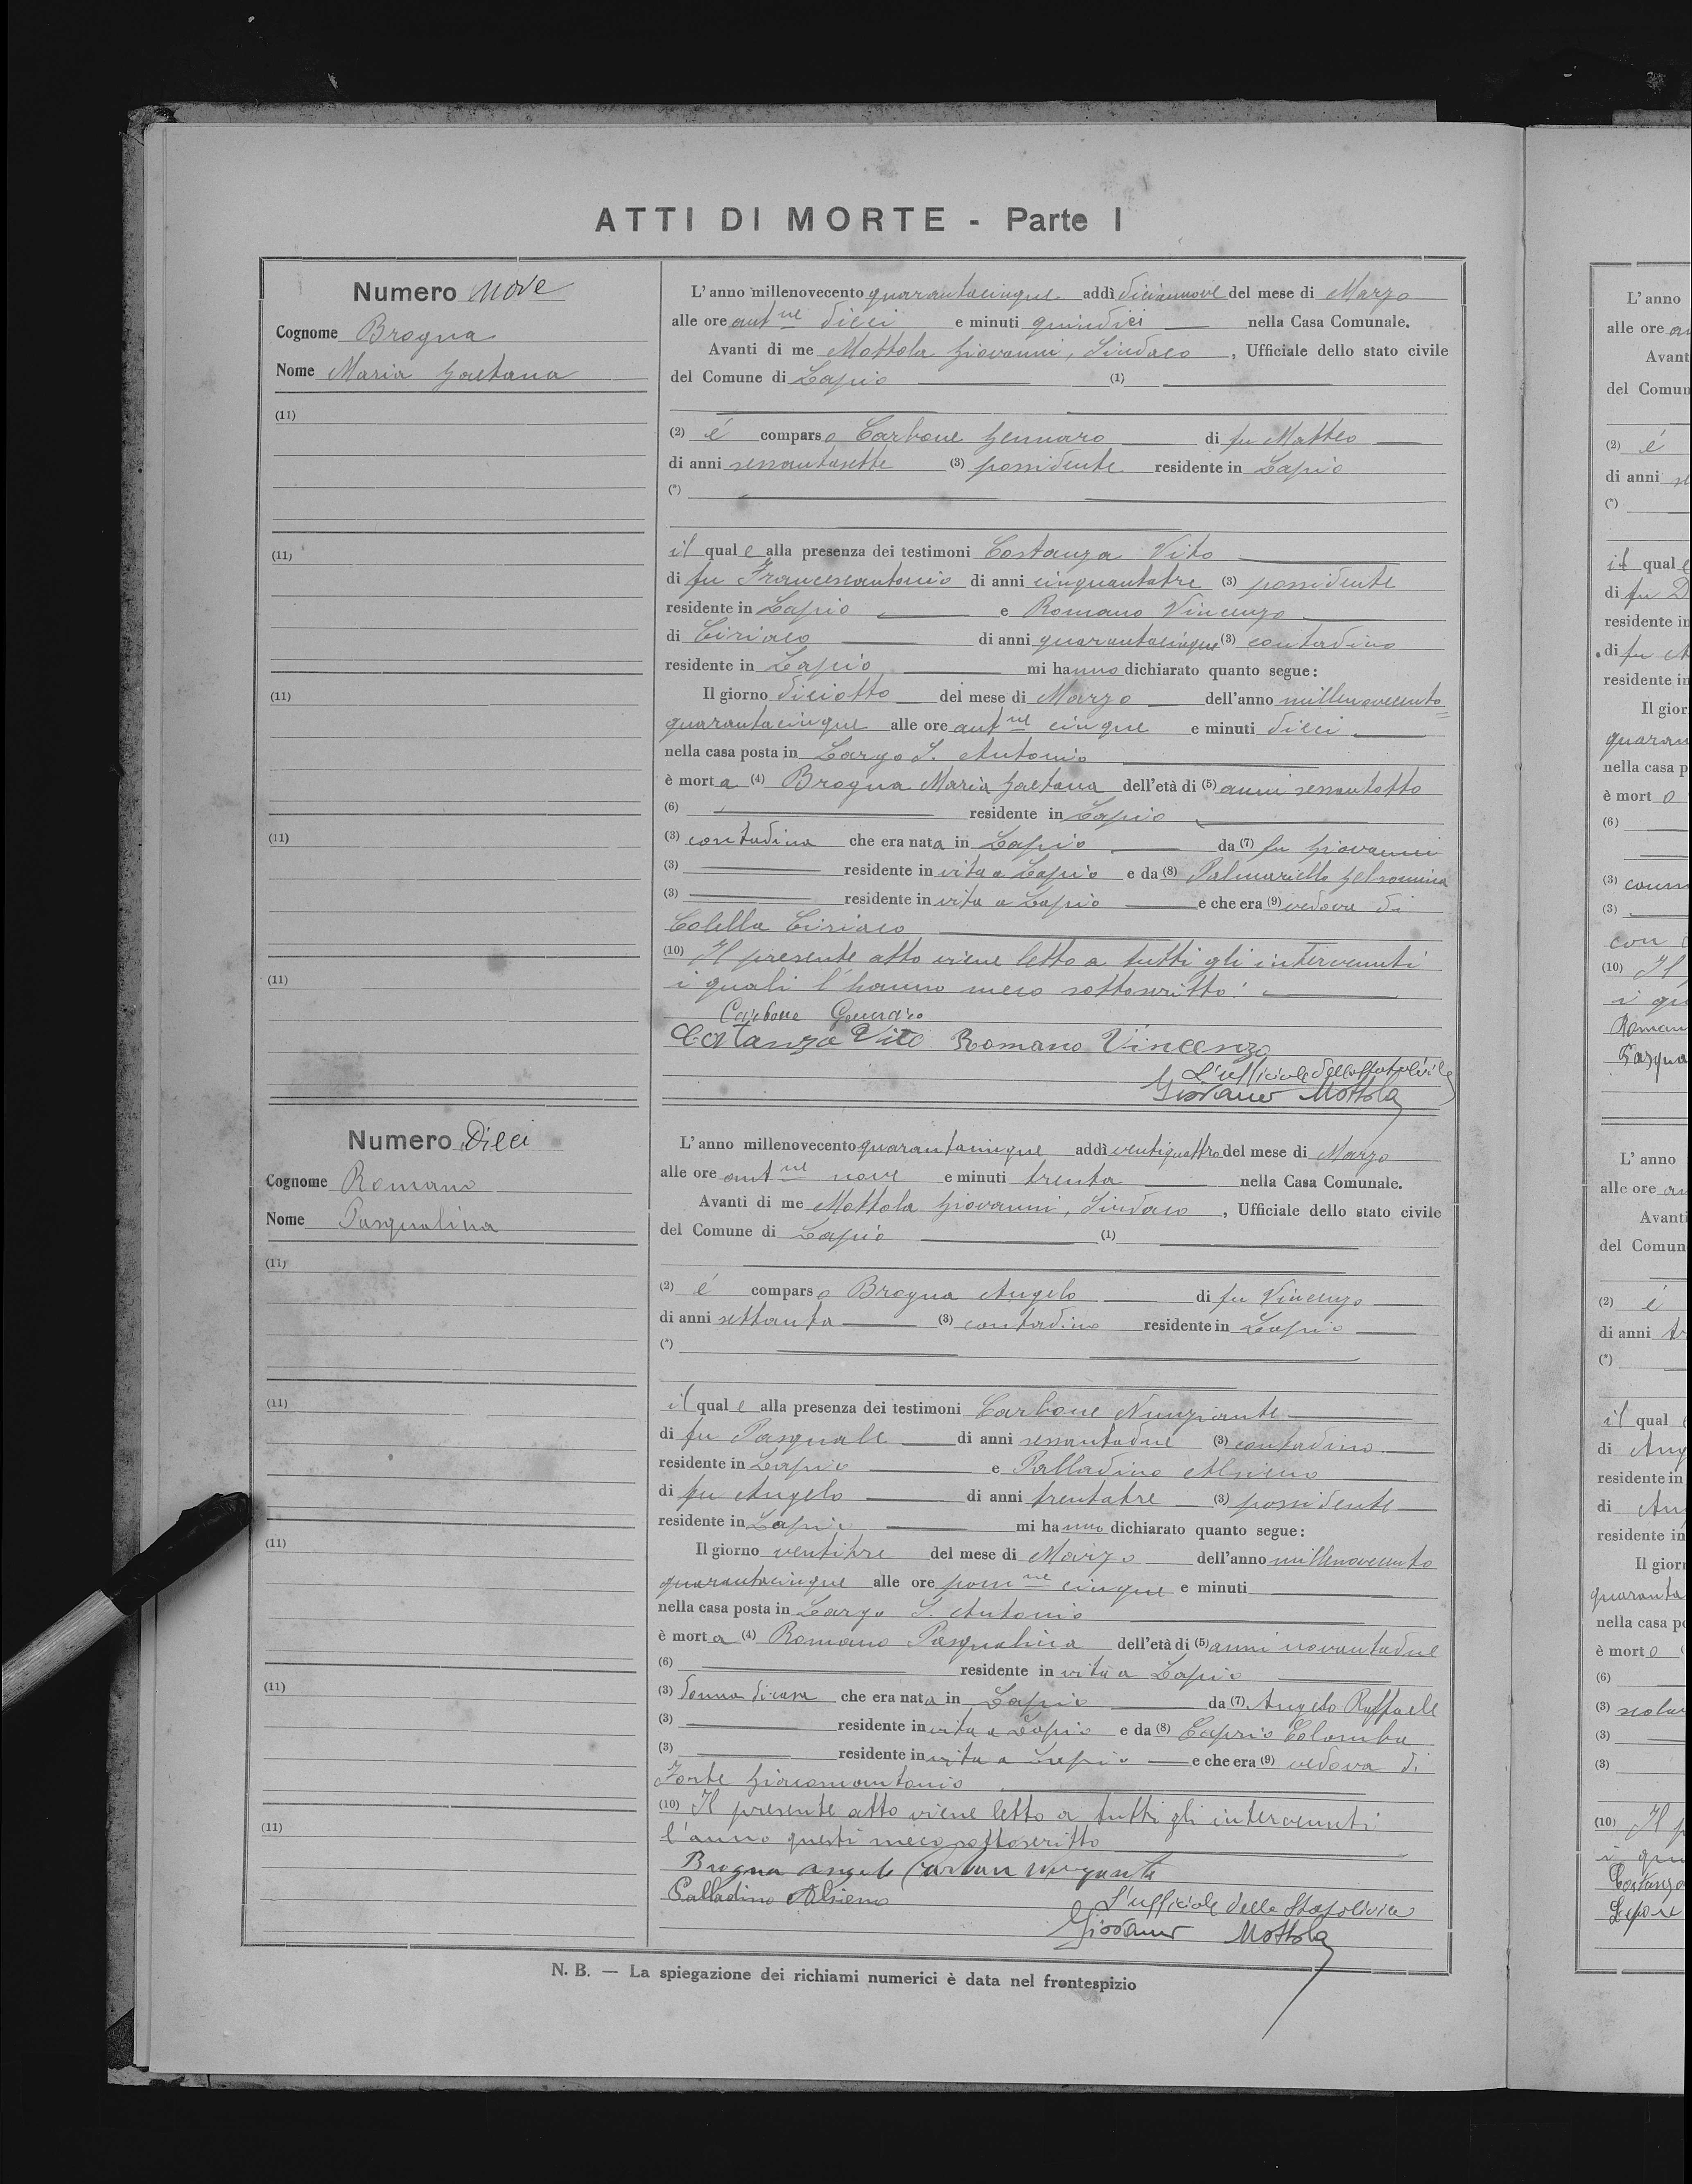 ATTI DI MORTE - Parte I
Numero Nove
Cognome Brogna
Nome Maria Gaetana
(11)
(11)
(11)
(11)
(11)
L'anno millenovecento quarantacinque addì diciannove del mese di Marzo
alle ore ant.ne dieci e minuti quindici nella Casa Comunale.
Avanti di me Mottola Giovanni, Sindaco, Ufficiale dello stato civile
del Comune di Lapio (1)
(2) é comparso Carbone Gennaro di fu Matteo
di anni sessantasette (3) possidente residente in Lapio
(*)
il quale alla presenza dei testimoni Costanza Vito
di fu Francescantonio di anni cinquantatre (3) possidente
residente in Lapio e Romano Vincenzo
di Ciriaco di anni quarantacinque (3) contadino
residente in Lapio mi hanno dichiarato quanto segue:
Il giorno diciotto del mese di Marzo dell'anno millenovecento=
quarantacinque alle ore ant.ne cinque e minuti dieci
nella casa posta in Largo S. Antonio
è morta (4) Brogna Maria Gaetana dell'età di (5) anni sessantotto
(6) residente in Lapio
(3) contadina che era nata in Lapio da (7) fu Giovanni
(3) residente in vita a Lapio e da (8) Palmariello Gelsomina
(3) residente in vita a Lapio e che era (9) vedova di
Colella Ciriaco
(10) Il presente atto viene letto a tutti gli intervenuti
i quali l'hanno meco sottoscritto.
Carbone Gennaro
Costanza Vito Romano Vincenzo
L'ufficiale dello Stato Civile
Giovanni Mottola
Numero Dieci
Cognome Romano
Nome Pasqualina
(11)
(11)
(11)
(11)
(11)
L'anno millenovecento quarantacinque addì ventiquattro del mese di Marzo
alle ore ant.ne nove e minuti trenta nella Casa Comunale.
Avanti di me Mottola Giovanni, Sindaco, Ufficiale dello stato civile
del Comune di Lapio (1)
(2) é comparso Brogna Angelo di fu Vincenzo
di anni settanta (3) contadino residente in Lapio
(*)
il quale alla presenza dei testimoni Carbone Nunziante
di fu Pasquale di anni sessantadue (3) contadino
residente in Lapio e Palladino Alsieno
di fu Angelo di anni trentatre (3) possidente
residente in Lapio mi hanno dichiarato quanto segue:
Il giorno ventitre del mese di Marzo dell'anno millenovecento
quarantacinque alle ore pom.ne cinque e minuti
nella casa posta in Largo S. Antonio
è morta (4) Romano Pasqualina dell'età di (5) anni novantadue
(6) residente in vita a Lapio
(3) donna di casa che era nata in Lapio da (7) Angelo Raffaele
(3) residente in vita a Lapio e da (8) Caprio Colomba
(3) residente in vita a Lapio e che era (9) vedova di
Forte Giacomantonio
(10) Il presente atto viene letto a tutti gli intervenuti
l'anno questi meco sottoscritto
Brogna Angelo Carbon Nunziante
Palladino Alsieno
L'ufficiale dello Stato Civile
Giovanni Mottola
N. B. — La spiegazione dei richiami numerici è data nel frontespizio
L'anno
alle ore
Avant
del Comun
(2) é
di anni
(*)
il quale
di fu
residente in
di fu
residente in
Il gior
quaran
nella casa p
è morto
(6)
(3)
(3)
con
(10) Il
i qu
Roman
Pasqua
L'anno
alle ore
Avanti
del Comun
(2) é
di anni
(*)
il qual
di Ang
residente in
di An
residente in
Il giorn
quaranta
nella casa po
è morto
(6)
(3) scolar
(3)
(3)
(10) Il p
i qu
Costanza
Lepore